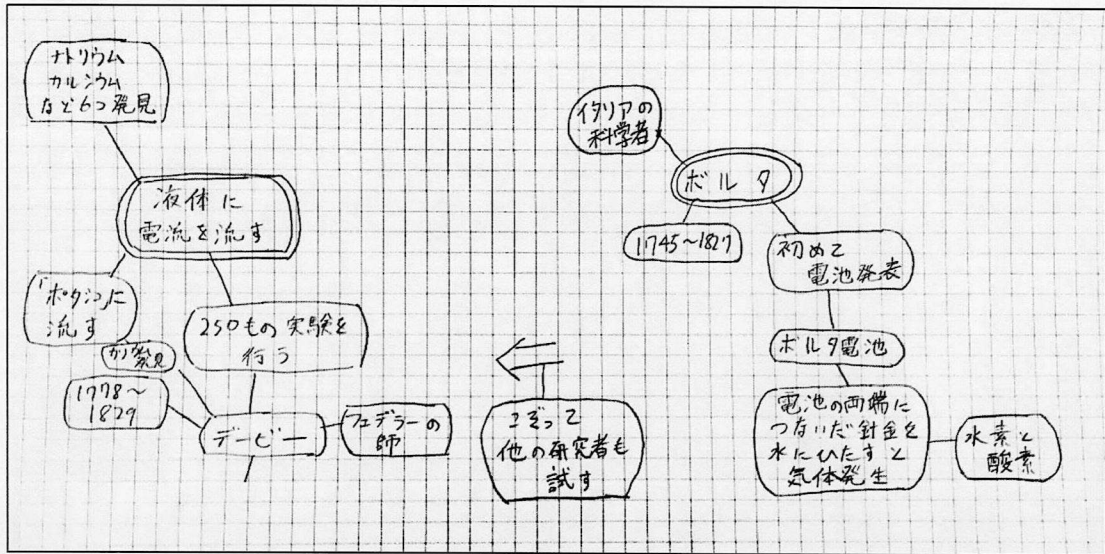 ナトリウム
カルシウム
など6つ発見
液体に
電流を流す
「ポタシ」に
流す
250もの実験を
行う
発見
1778～
1829
デービー
フェデラーの
師
こぞって
他の研究者も
試す
イタリアの
科学者
ボルタ
1745～1827
初めて
電池発表
ボルタ電池
電池の両端に
つないだ針金を
水にひたすと
気体発生
水素と
酸素